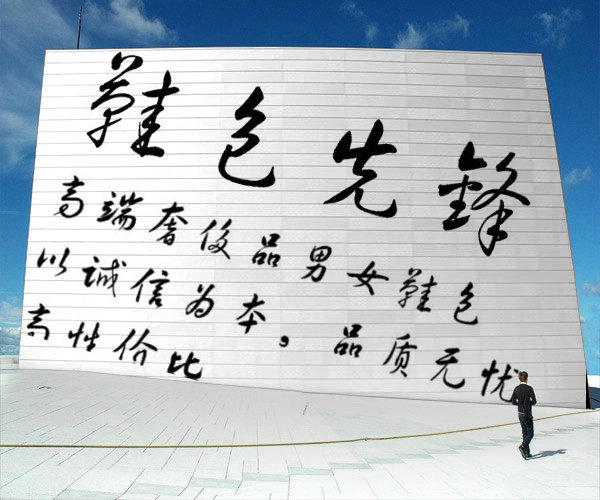 鞋色先锋
高端奢侈品男女鞋色
以诚信为本。品质无忧
高性价比